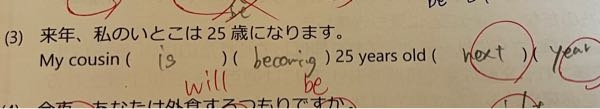 be
(3) 来年、私のいとこは 25 歳になります。
My cousin ( is )( becoming ) 25 years old ( next )( year
will be